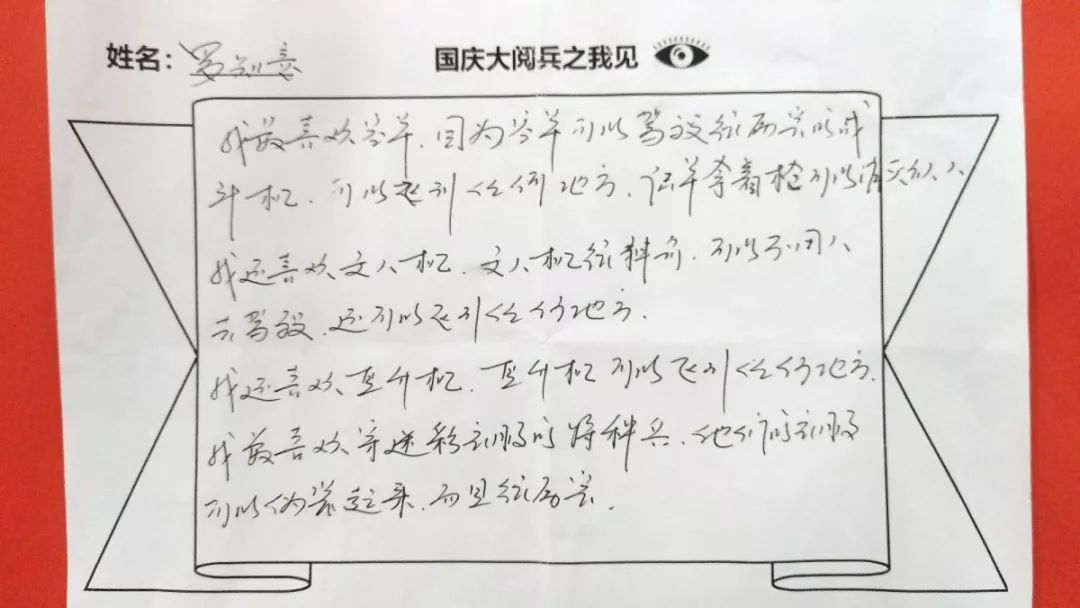 姓名：罗
国庆大阅兵之我见
我最喜欢空军，因为空军可以驾驶很厉害的战
斗机，可以飞到任何地方，陆军拿着枪可以消灭敌人
我还喜欢无人机，无人机很神奇，可以不用人
去驾驶，还可以飞到任何地方。
我还喜欢直升机，直升机可以飞到任何地方。
我最喜欢穿迷彩服的特种兵，他们的衣服
可以伪装起来，而且很厉害。